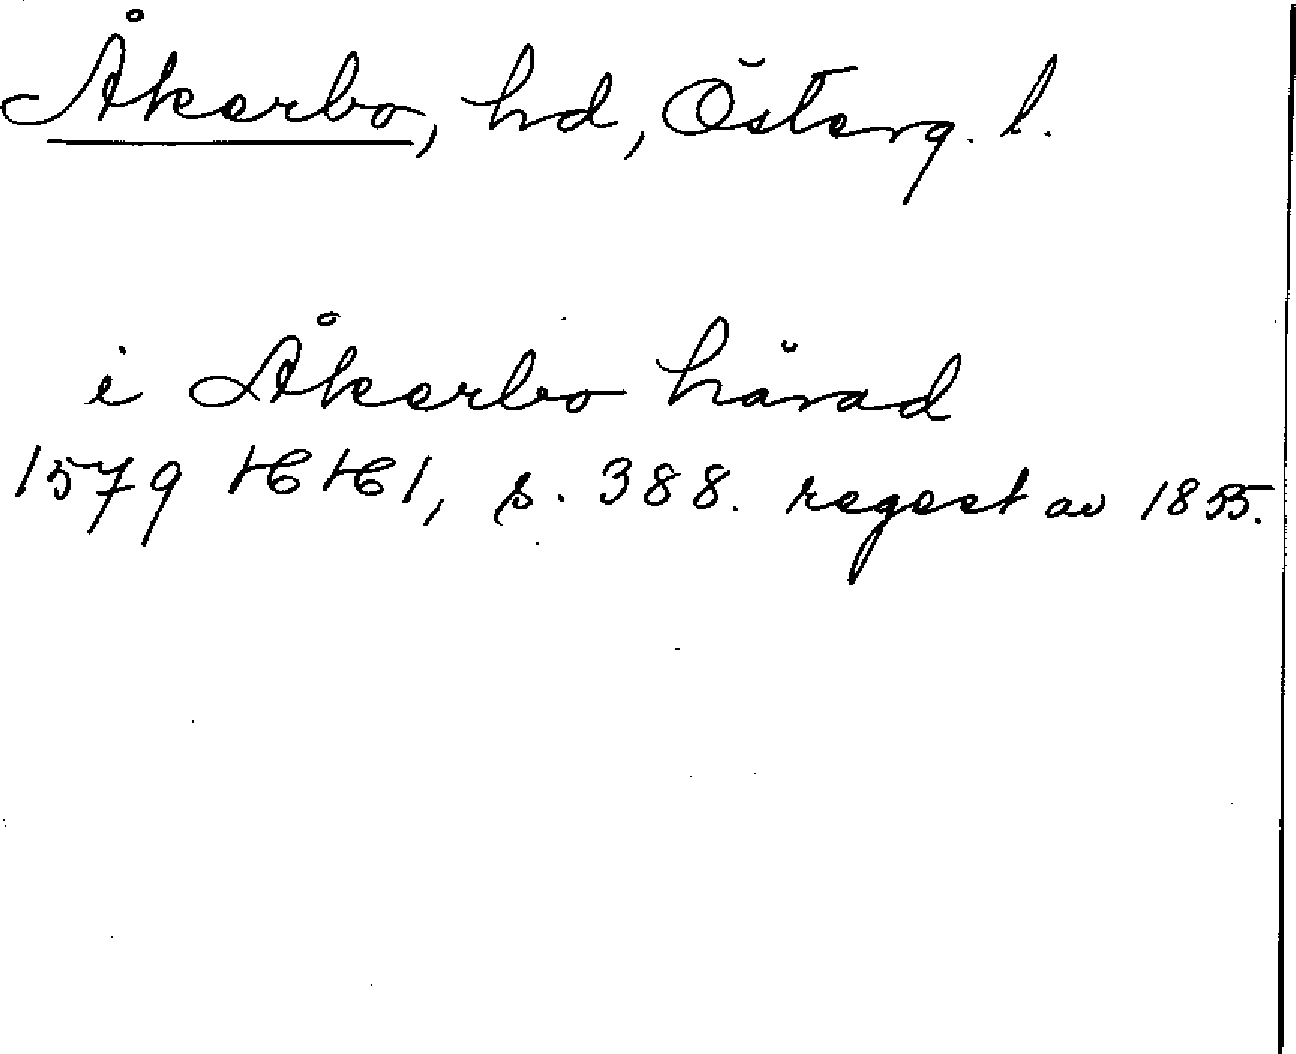 Åkerbo, hd, Österg. l.
i Åkerbo härad
1579 HH 1, s. 388. regest av 1855.